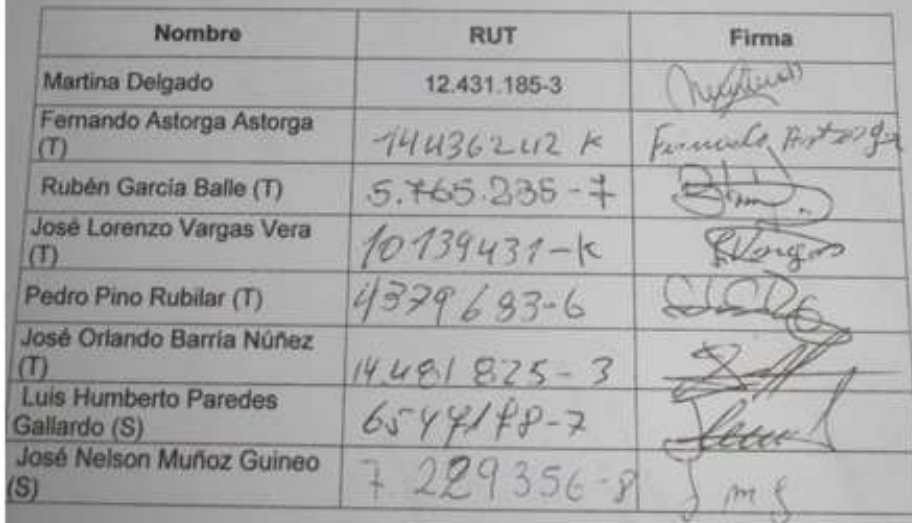 Nombre RUT Firma
Martina Delgado 12.431.185-3
Fernando Astorga Astorga
(T) 14436242 K Fernando Astorga
Rubén García Balle (T) 5.765.235-7
José Lorenzo Vargas Vera
(T) 10139431-K Vargas
Pedro Pino Rubilar (T) 4379683-6
José Orlando Barría Núñez
(T) 14.481825-3
Luis Humberto Paredes
Gallardo (S)
José Nelson Muñoz Guineo
(S) 7 229356-8 J m g